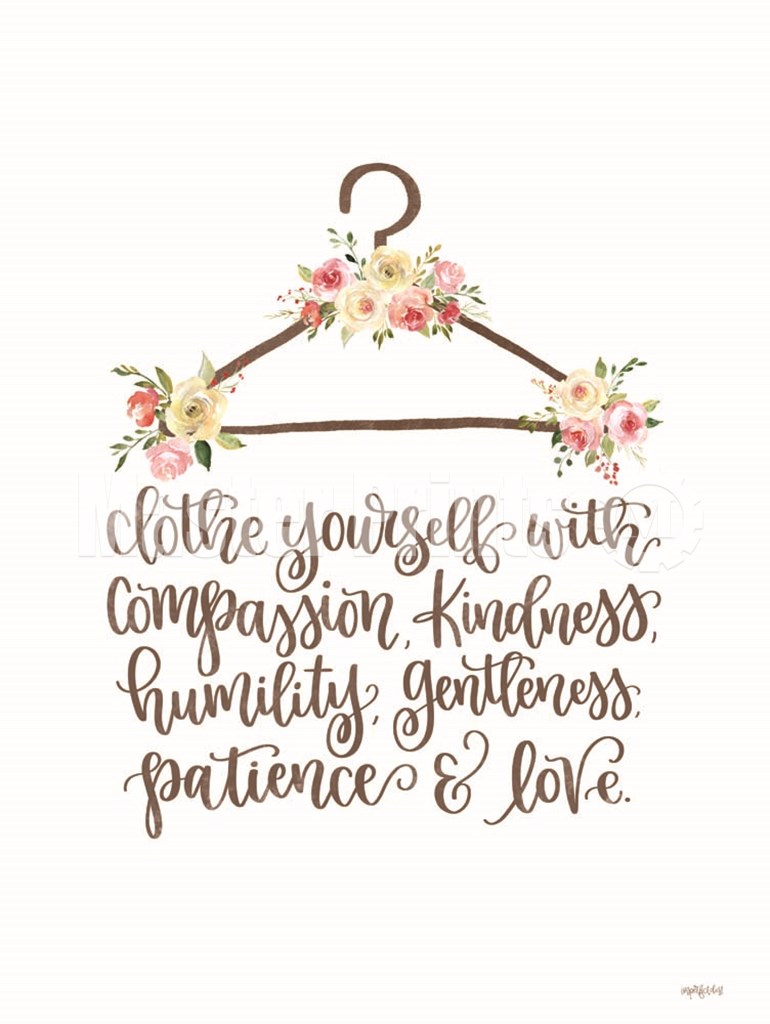 clothe yourself with
compassion, kindness,
humility, gentleness,
patience & love.
imperfect dust